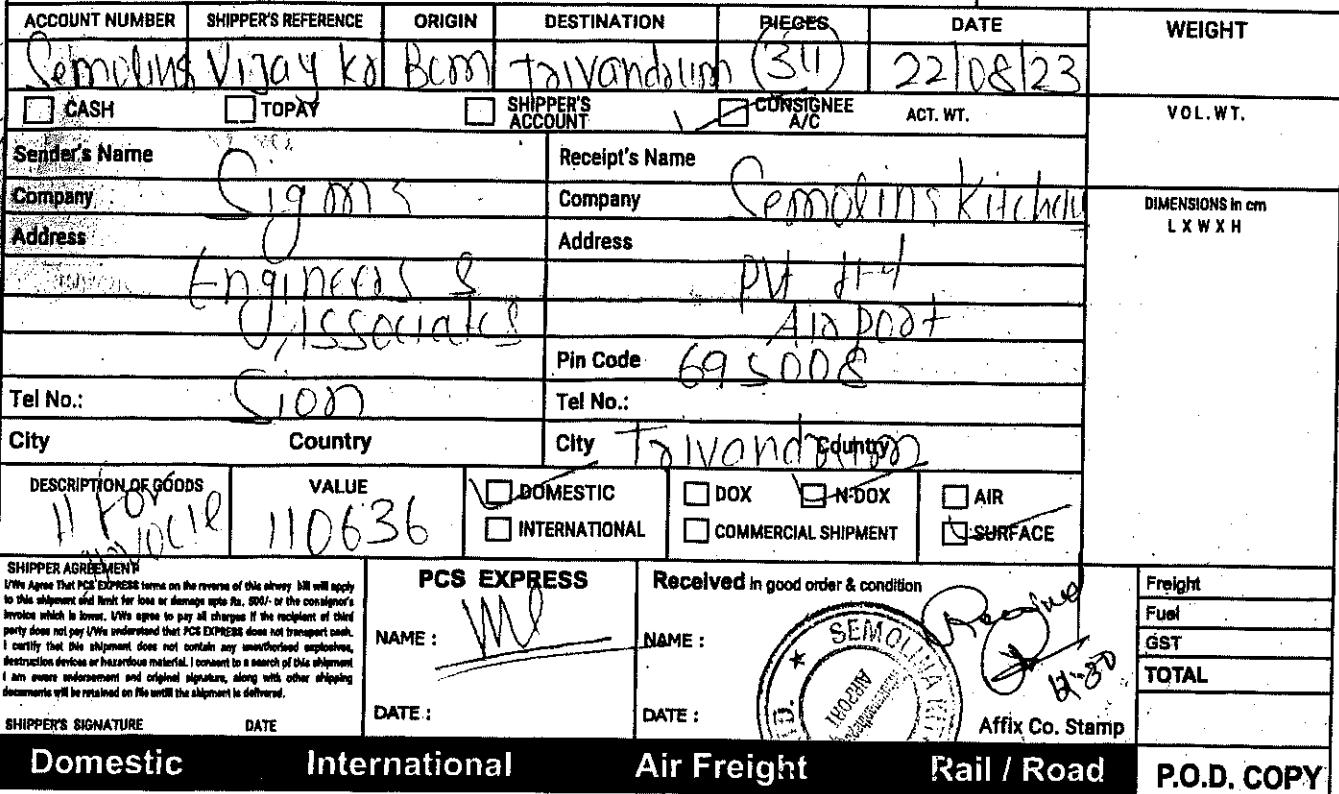 ACCOUNT NUMBER SHIPPER'S REFERENCE ORIGIN DESTINATION PIECES DATE WEIGHT
Semolina Vijay kr Bom Trivandrum 22/08/23
CASH TOPAY SHIPPER'S ACCOUNT CONSIGNEE A/C ACT. WT. VOL.WT.
Sender's Name Receipt's Name
Company Sigma Company Semolina Kitchen
DIMENSIONS in cm
L X W X H
Address Address
Engineers & Pvt Ltd
Associates Airport
Pin Code 695008
Tel No.: Sion Tel No.:
City Country City Trivandrum Country
DESCRIPTION OF GOODS VALUE DOMESTIC DOX N-DOX AIR
110636 INTERNATIONAL COMMERCIAL SHIPMENT SURFACE
SHIPPER AGREEMENT
I/We Agree That PCS EXPRESS terms on the reverse of this airwey bill will apply
to this shipment end limit for loss or damage upto Rs. 500/- or the consignor's
invoice which is lower. I/We agree to pay all charges if the recipient of third
party does not pay I/We understand that PCS EXPRESS does not transport cash.
I certify that this shipment does not contain any unauthorised explosives,
destruction devices or hazardous material. I consent to a search of this shipment
I am aware endorsement and original signature, along with other shipping
documents will be retained on file untill the shipment is delivered.
SHIPPER'S SIGNATURE DATE
PCS EXPRESS
NAME :
DATE :
Received in good order & condition
NAME :
DATE :
SEMOLINA KIT
AIRPORT
Affix Co. Stamp
Freight
Fuel
GST
TOTAL
Domestic International Air Freight Rail / Road P.O.D. COPY